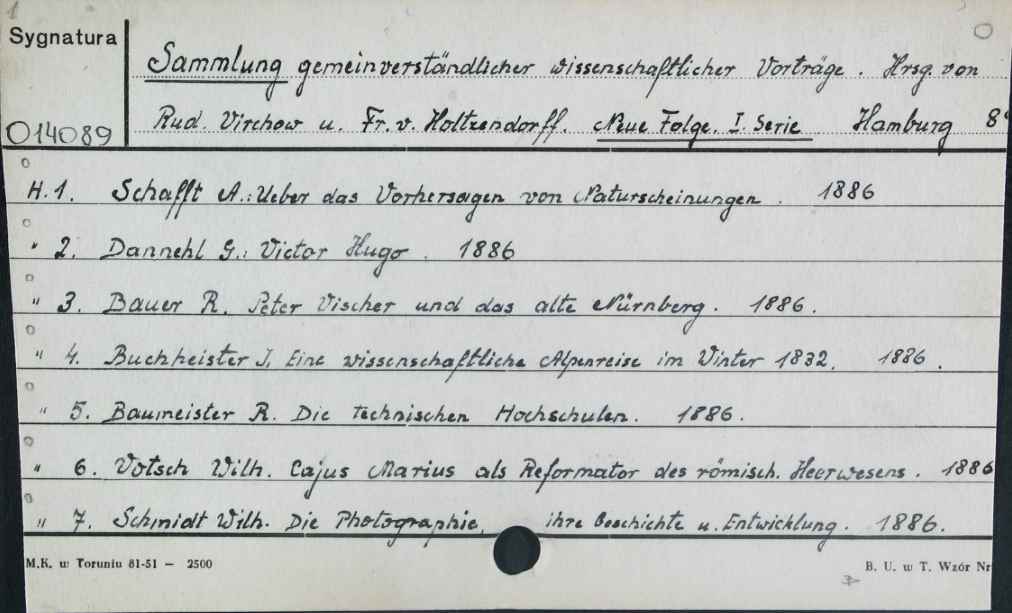 Sygnatura
Sammlung gemeinverständlicher wissenschaftlicher Vorträge. Hrsg. von
Rud. Virchow u. Fr. v. Holtzendorff. Neue Folge. I. Serie Hamburg 8°
O14089
H. 1. Schafft A.: Ueber das Vorhersagen von Naturscheinungen. 1886
" 2. Dannehl G.: Victor Hugo. 1886
" 3. Bauer R. Peter Vischer und das alte Nürnberg. 1886.
" 4. Buchheister J. Eine wissenschaftliche Alpenreise im Winter 1832. 1886.
" 5. Baumeister R. Die technischen Hochschulen. 1886.
" 6. Votsch Wilh. Cajus Marius als Reformator des römisch. Heerwesens. 1886
" 7. Schmidt Wilh. Die Photographie, ihre Geschichte u. Entwicklung. 1886.
M.K. w Toruniu 81-51 — 2500
B. U. w T. Wzór Nr